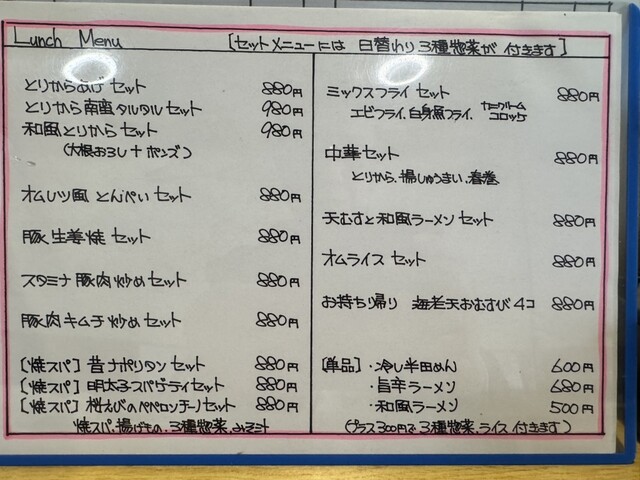 Lunch Menu [セットメニューには 日替わり 3種惣菜が 付きます]
とりからあげ セット 880円
とりから南蛮タルタル セット 980円
和風とりから セット 980円
(大根おろし+ポンズ)
オムレツ風 とんぺい セット 880円
豚生姜焼 セット 880円
スタミナ豚肉炒め セット 880円
豚肉キムチ炒め セット 880円
[焼スパ] 昔ナポリタン セット 880円
[焼スパ] 明太子スパゲーティ セット 880円
[焼スパ] 桜えびのペペロンチーノ セット 880円
焼スパ、揚げもの、3種惣菜、みそ汁
ミックスフライ セット 880円
エビフライ、白身魚フライ、カニクリームコロッケ
中華セット 880円
とりから、揚しゅうまい、春巻
天むすと和風ラーメン セット 880円
オムライス セット 880円
お持ち帰り 海老天おむすび4コ 880円
[単品]・冷し半田めん 600円
・旨辛ラーメン 680円
・和風ラーメン 500円
(プラス300円で3種惣菜、ライス付きます)